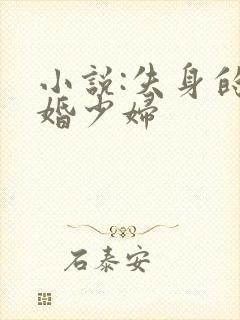 小説:失身的
婚少婦
石泰安